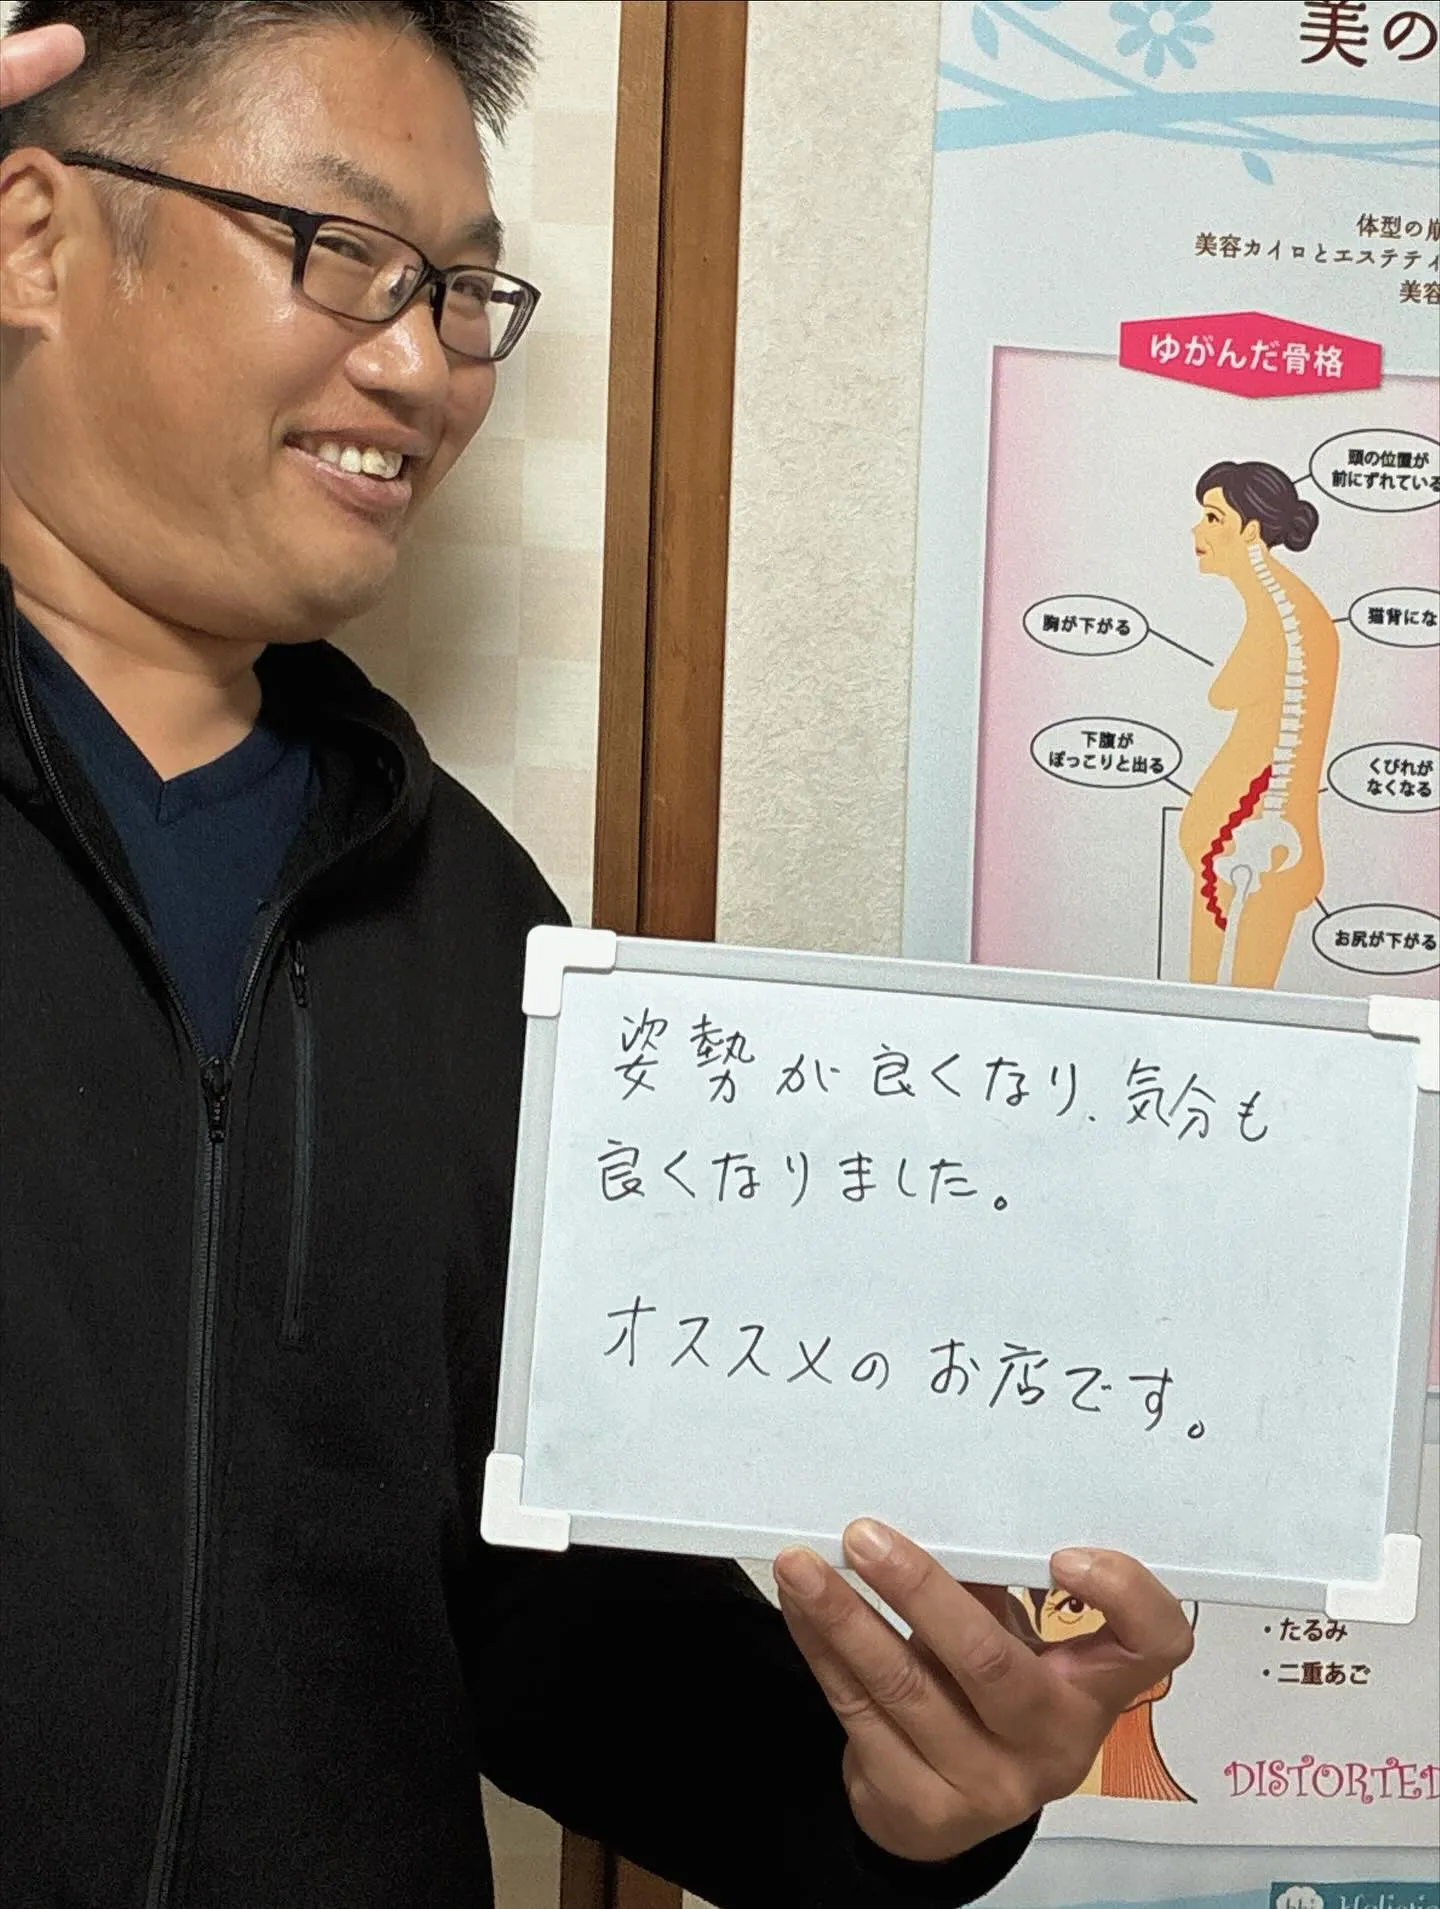 美の
体型の崩
美容カイロとエステティ
美容
ゆがんだ骨格
頭の位置が
前にずれている
胸が下がる
猫背にな
下腹が
ぽっこりと出る
くびれが
なくなる
お尻が下がる
姿勢が良くなり、気分も
良くなりました。
オススメのお店です。
・たるみ
・二重あご
DISTORTED
hhi Holistic